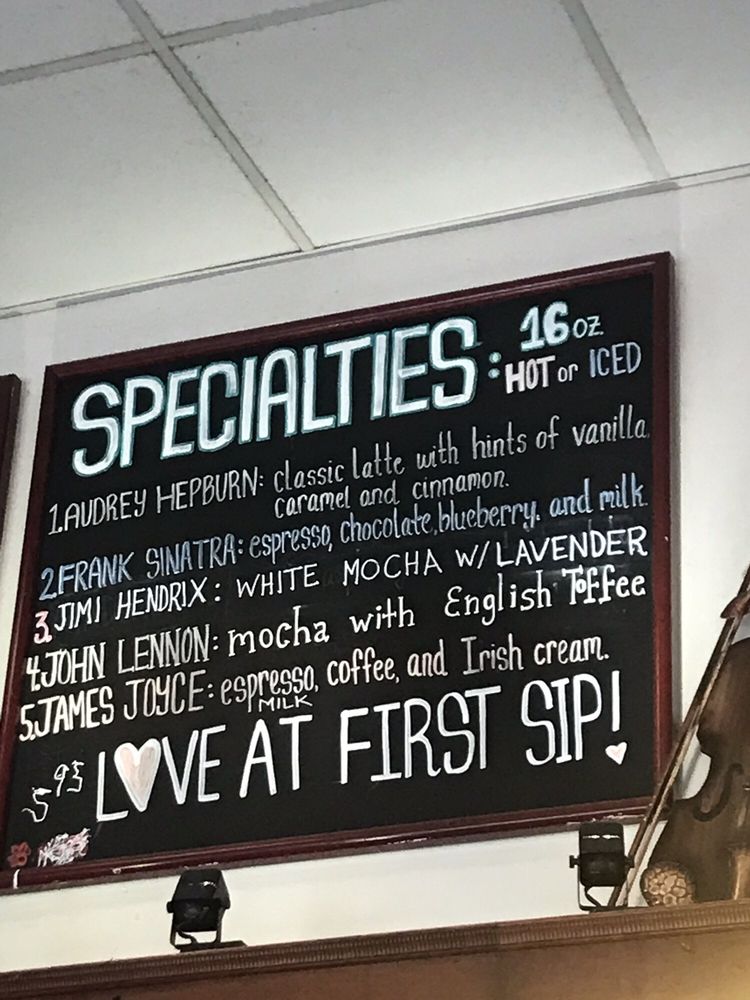 SPECIALTIES: 16 oz
HOT or ICED
1. AUDREY HEPBURN: classic latte with hints of vanilla
caramel and cinnamon.
2. FRANK SINATRA: espresso, chocolate, blueberry. and milk.
3. JIMI HENDRIX: WHITE MOCHA W/ LAVENDER
4. JOHN LENNON: mocha with English Toffee
5. JAMES JOYCE: espresso, coffee, and Irish cream.
MILK
5 95 LOVE AT FIRST SIP!